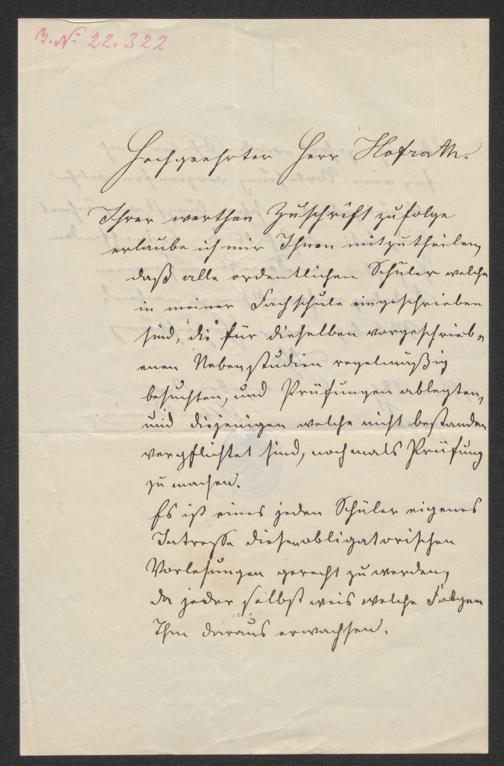 B. No 22.322
Hochgeehrter Herr Hofrath.
Ihrer werthen Zuschrift zufolge
erlaube ich mir Ihnen mitzutheilen,
daß alle ordentlichen Schüler welche
in meiner Fachschule eingeschrieben
sind, die für dieselben vorgeschrieb=
enen Nebenstudien regelmäßig
besuchten, und Prüfungen ablegten,
und diejenigen welche nicht bestanden
verpflichtet sind, nochmals Prüfung
zu machen.
Es ist eines jeden Schüler eigenes
Intresse diesen obligatorischen
Vorlesungen gerecht zu werden,
da jeder selbst weis welche Folgen
Ihm daraus erwachsen.